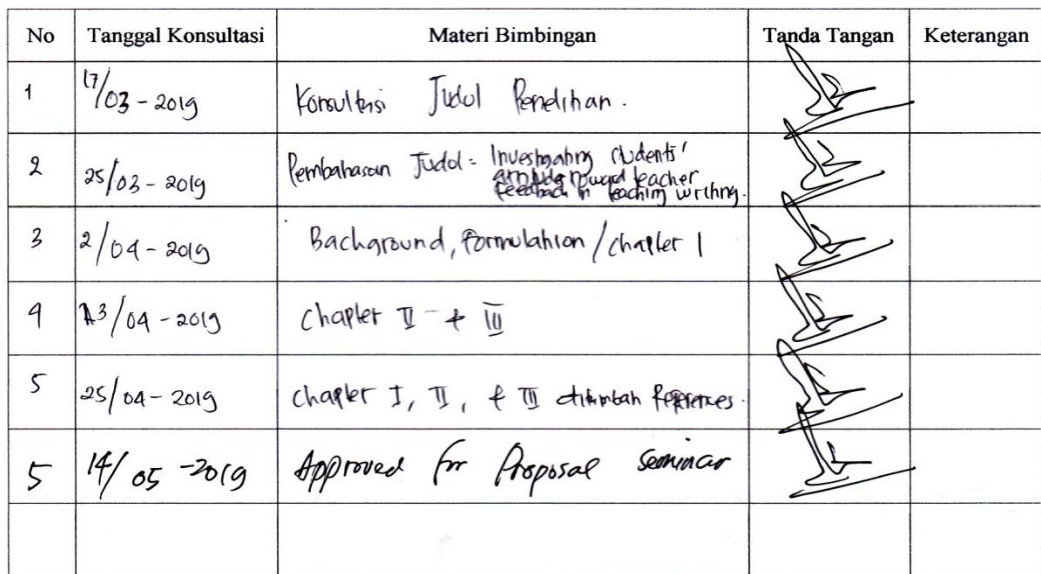 No Tanggal Konsultasi Materi Bimbingan Tanda Tangan Keterangan
1 17/03-2019 Konsultasi Judul Penelitian.
2 25/03-2019 Pembahasan Judul = Investigating students'
attitude toward teacher
feedback in teaching writing.
3 2/04-2019 Background, Formulation/chapter I
4 13/04-2019 Chapter II + III
5 25/04-2019 chapter I, II, & III ditambah References.
5 14/05-2019 Approved for Proposal Seminar